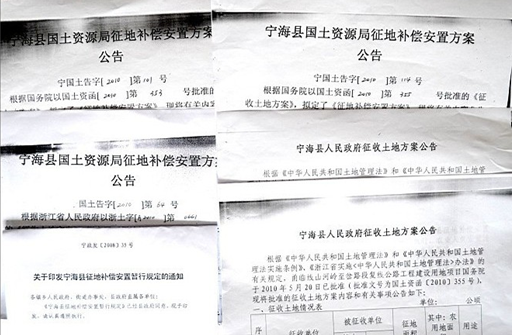 宁海县国土资源局征地补偿安置方案
公告
宁国土告字[2010]第101号
根据国务院以国土资函[2010]第353号批准的
宁海县国土资源局征地补偿安置方案
公告
宁国土告字[2010]第114号
根据国务院以国土资函[2010]第355号批准的《征
收土地方案》,拟定了《征地补偿安置方案》,现将有关内容
宁海县国土资源局征地补偿安置方
公告
国土告字[2010]第64号
根据浙江省人民政府以浙土字[2010]第
宁政发〔2008〕35号
关于印发宁海县征地补偿安置暂行规定的通知
各镇乡人民政府,街道办事处,县政府直属各单位:
宁海县人民政府征收土地方案公告
根据《中华人民共和国土地管理法》和《中华人民共和国土地
宁海县人民政府征收土地方案公告
根据《中华人民共和国土地管理法》和《中华人民共和国土地管
理法实施条例》、《浙江省实施<中华人民共和国土地管理法>办法》的
有关规定,甬临线山河岭至岔路段复线公路工程建设用地项目国务院
于2010年5月20日已批准(批准文号为国土资函[2010]355号),
现将批准的征收土地方案内容和有关事项公告如下:
一、征收土地情况表
单位:公顷
序
征收单位
被征收单位
征地
其中:农
用地面
土地
用途